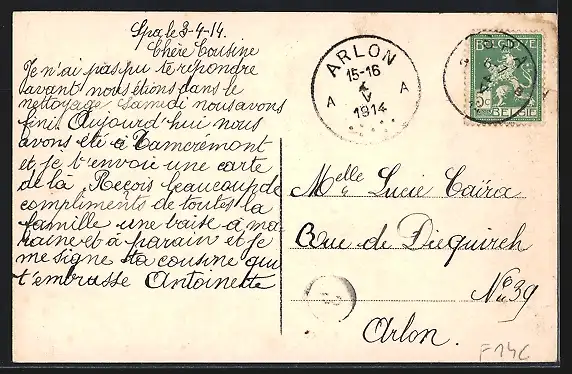 Spa, le 3-4-14.
Chère Cousine
Je n'ai pas pu te repondre
avant nous étions dans le
nettoyage Samedi nous avons
fini. Aujourd'hui nous
avons été à
et je t'envoie une carte
de la Reçois beaucoup de
compliments de toutes la
famille une baise à ma
raine et à parain et je
me signe ta cousine qui
t'embrasse Antoinette
ARLON
15-16
A A
V
1914
BELGIE
Melle Lucie Caïra
Rue de Diequirch
No 39
Arlon.
F14C